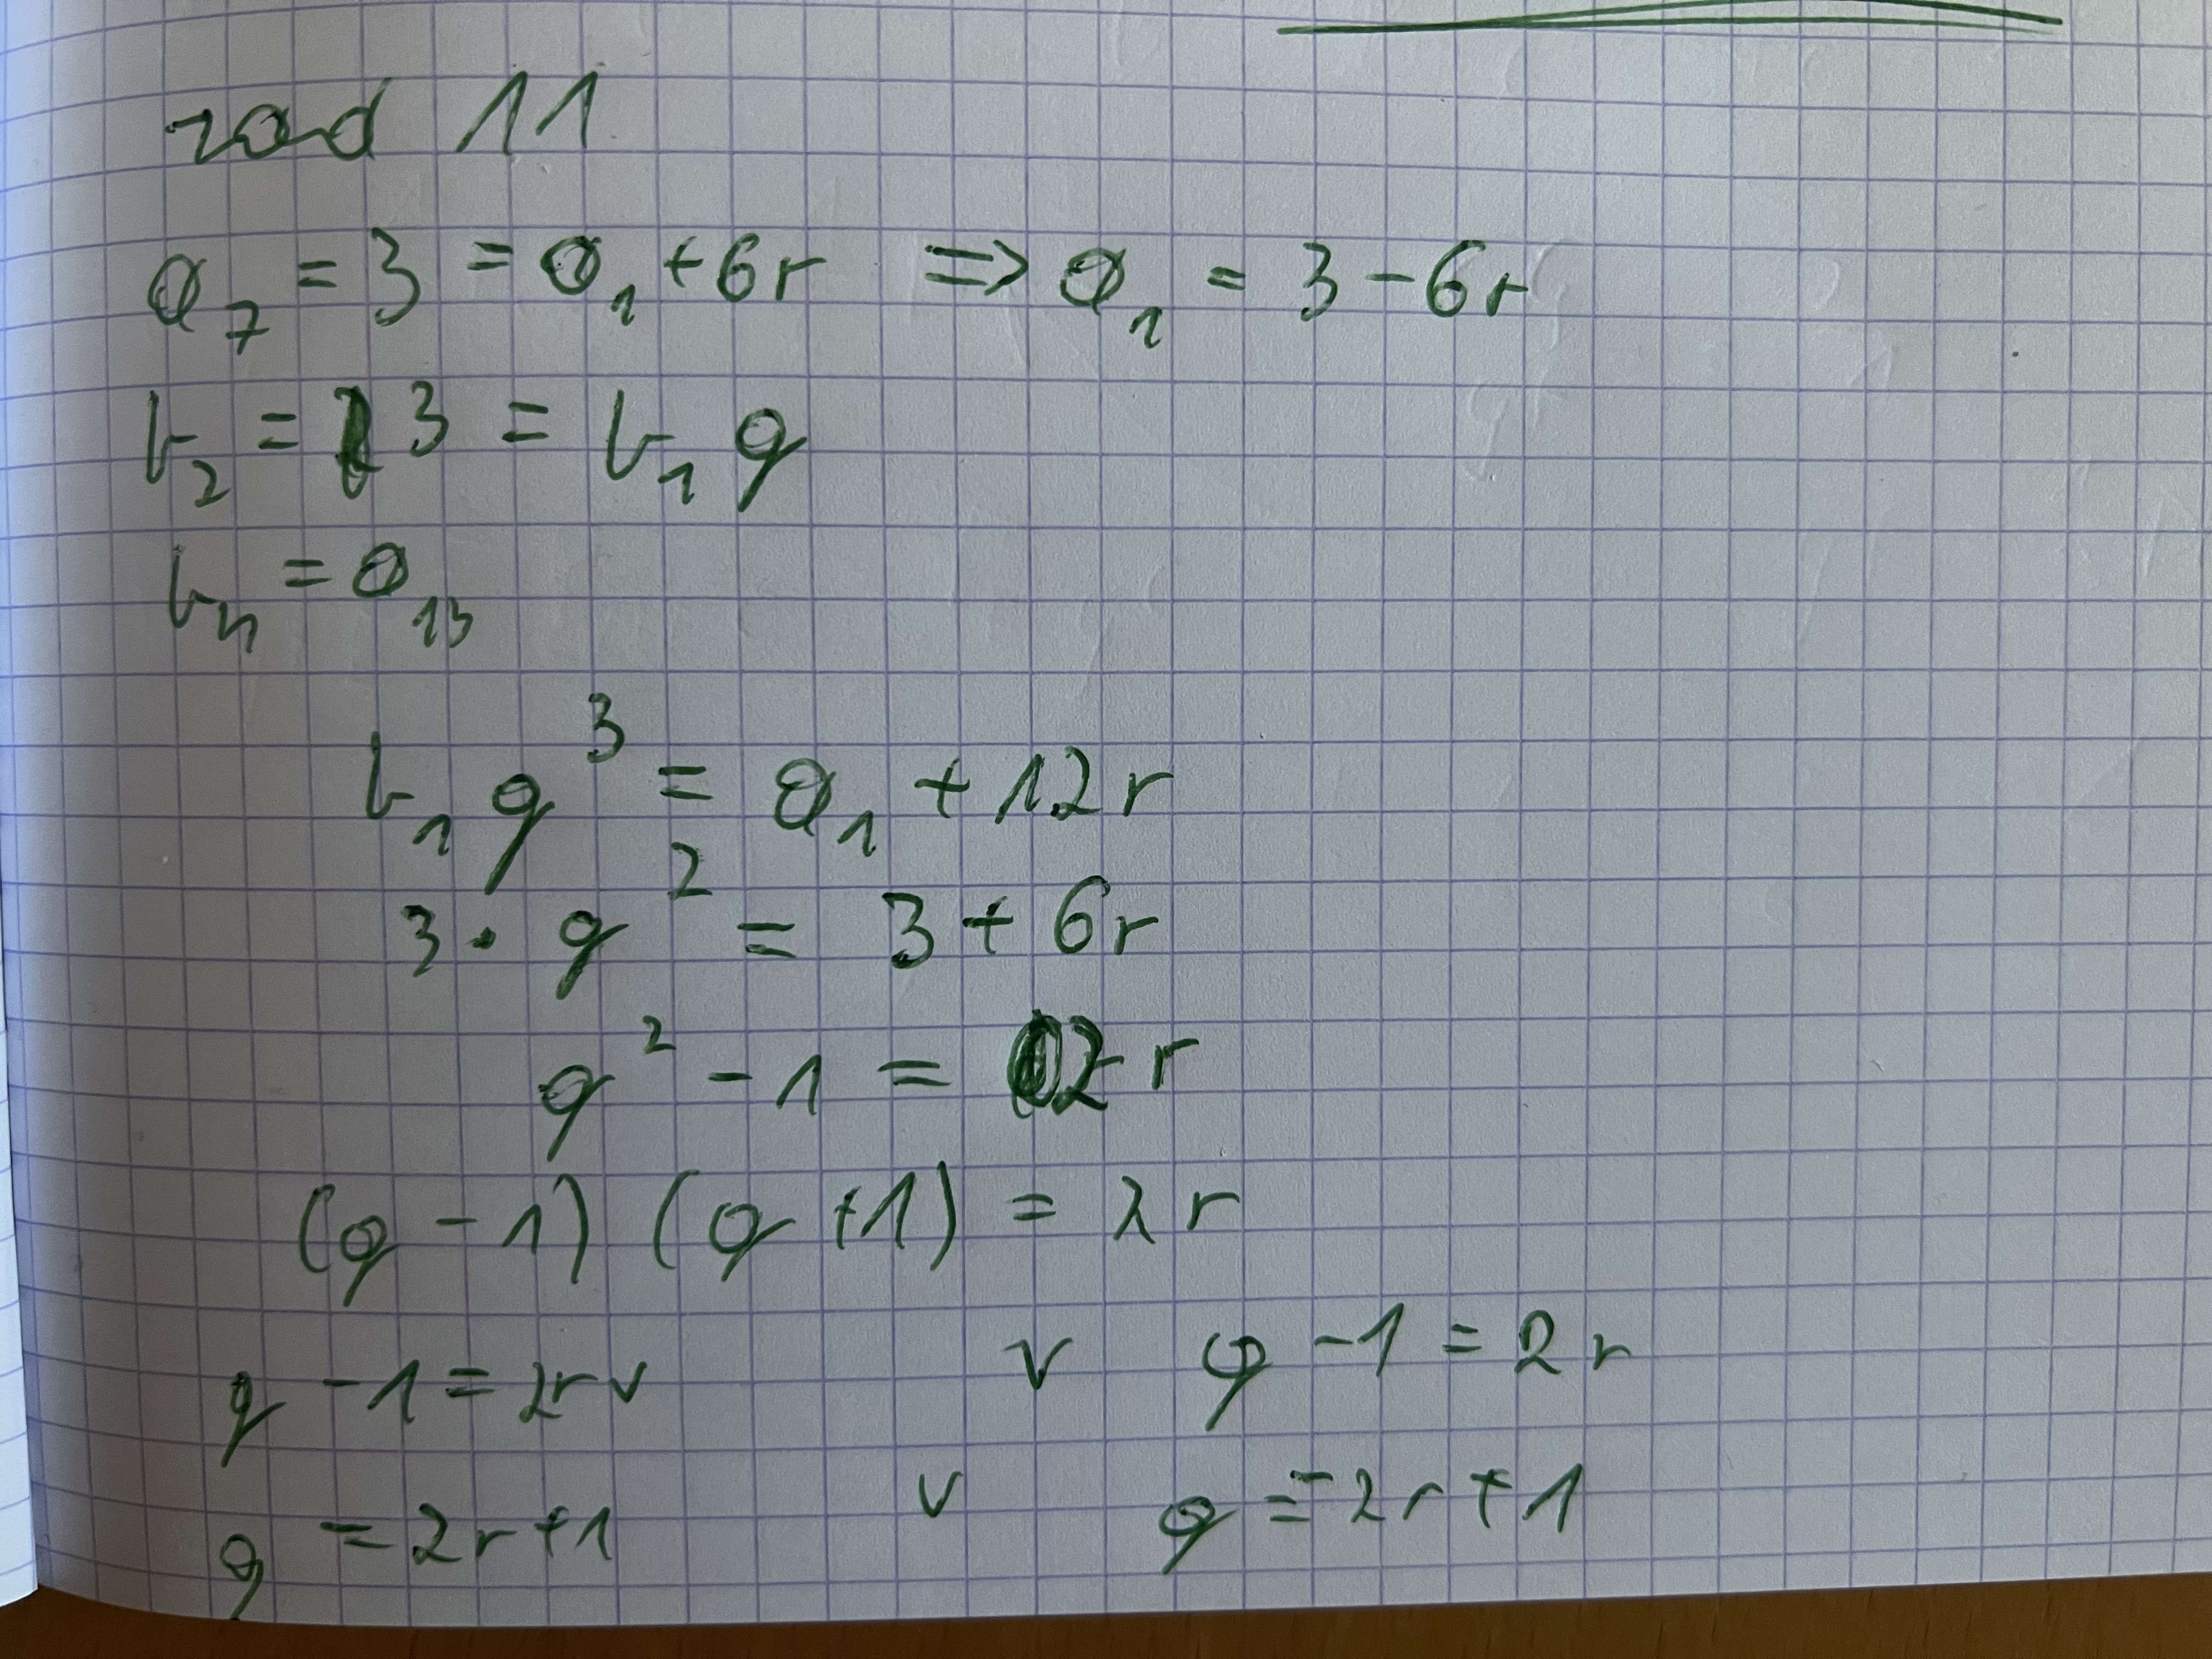 zad 11
a₇ = 3 = a₁ + 6r => a₁ = 3 - 6r
b₂ = 3 = b₁ q
b₄ = a₁₃
b₁ q³ = a₁ + 12r
3 · q² = 3 + 6r
q² - 1 = 2r
(q - 1) (q + 1) = 2r
q - 1 = 2r v v q - 1 = 2r
q = 2r + 1 v q = 2r + 1